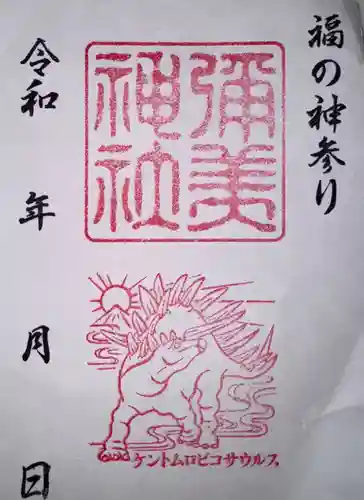 福の神参り
彌美
神社
ケントムロピコサウルス
令和 年 月 日